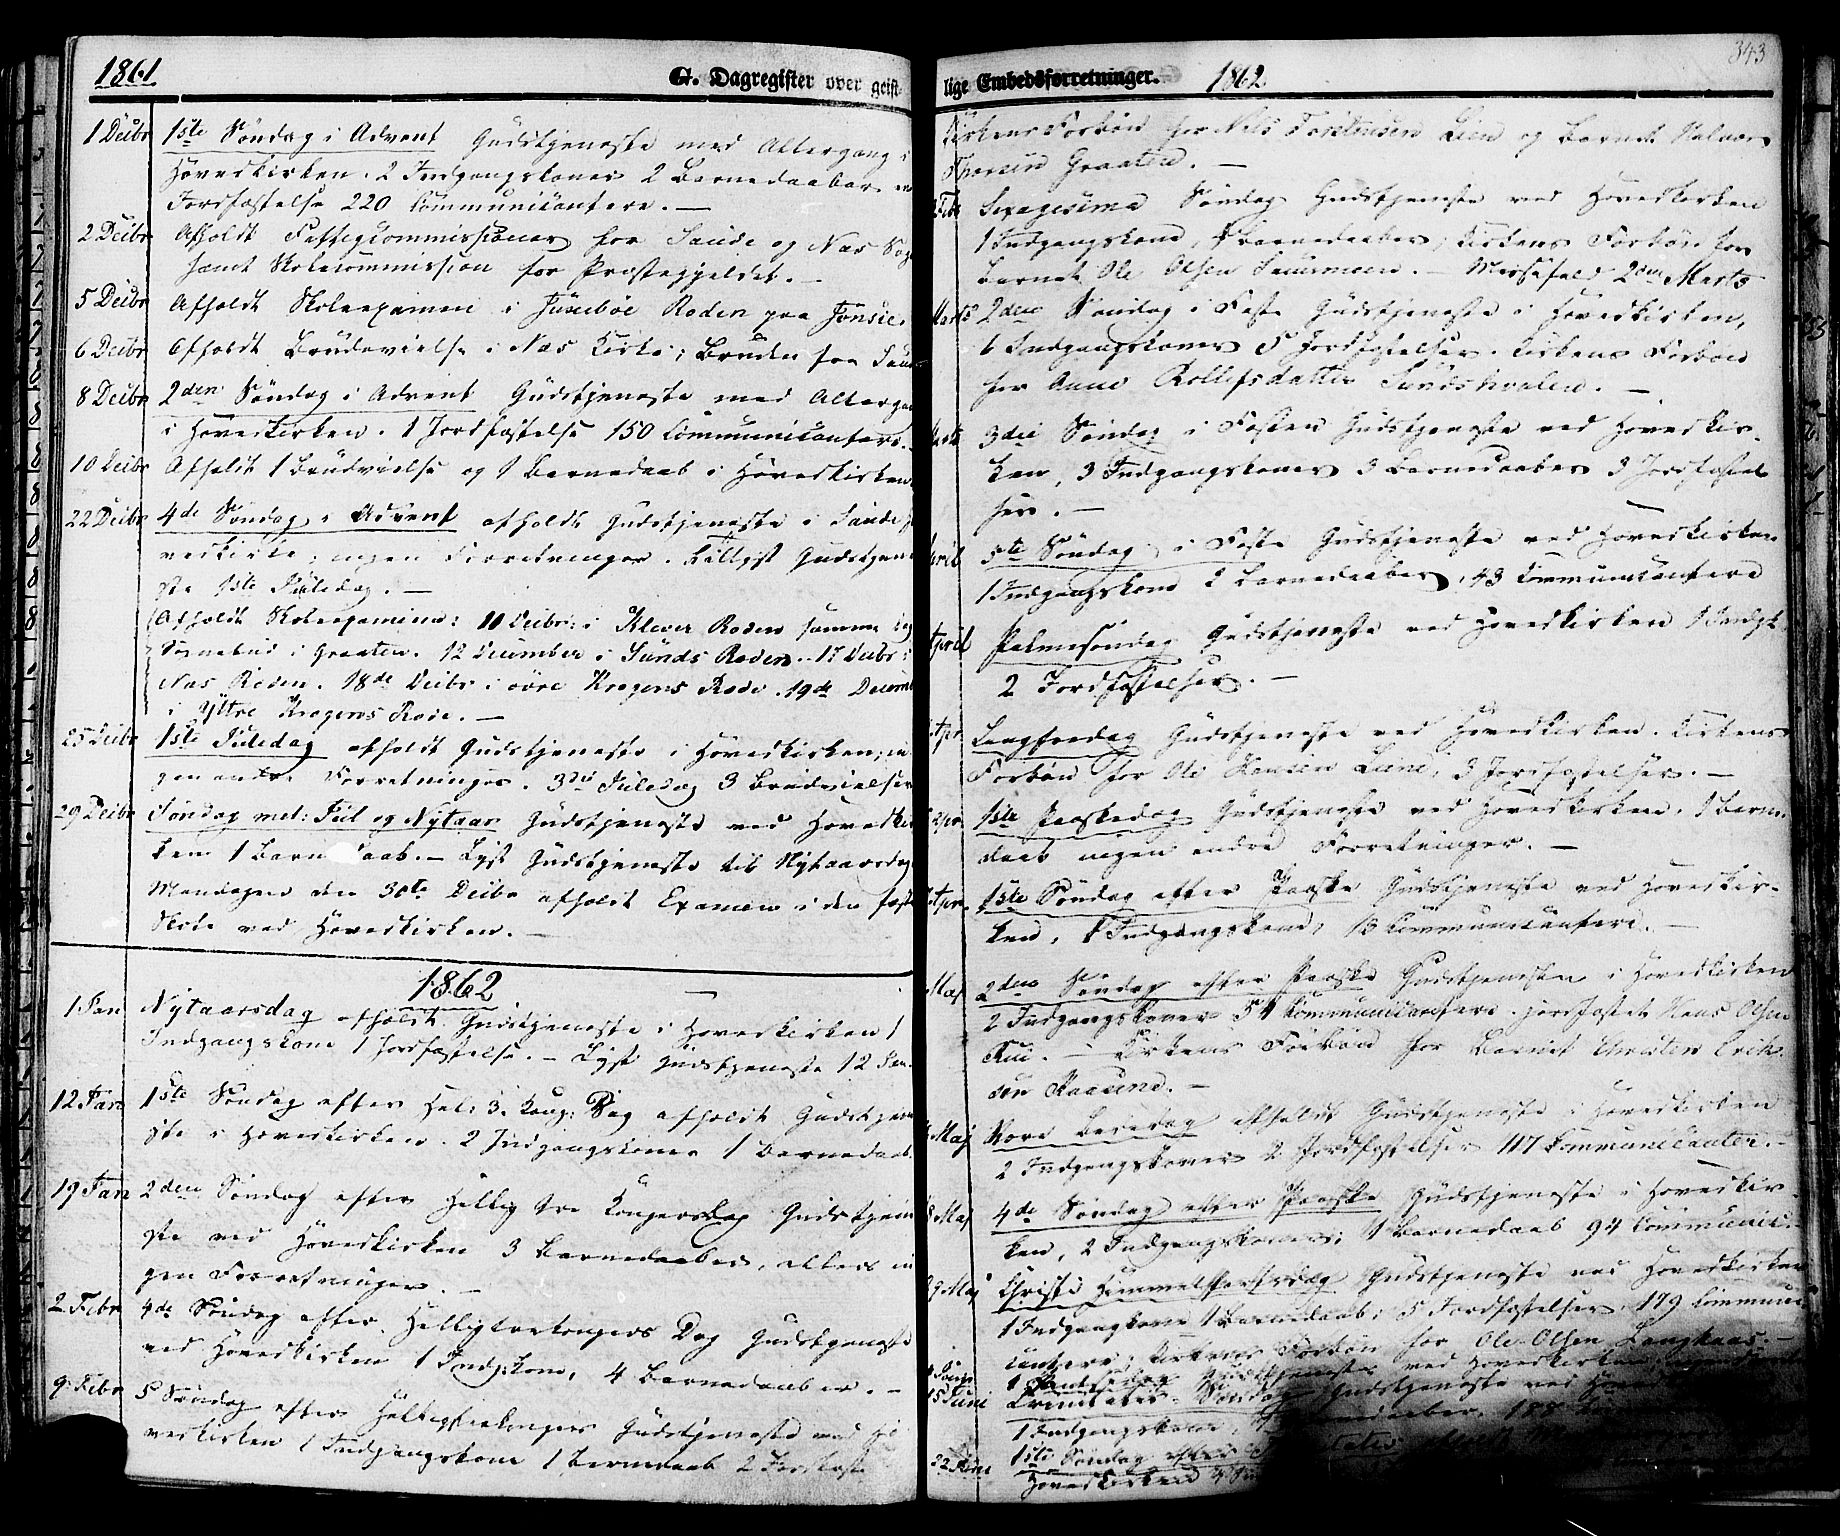 1861
G. Dagregister over geist-
1 Decbr 1ste Søndag i Advent Gudstjeneste med Altergang i
Hovedkirken. 2 Indgangskoner 2 Barnedaaber en
Jordfæstelse 220 Communicantere. —
2 Decbr Afholdt Fattigcommissioner for Saude og Næs Sog
samt Skolecommission for Præstegjeldet. —
5 Decbr Afholdt Skoleexamen i Roden paa
6 Decbr Afholdt Brudevielse i Næs Kirke; Bruden fra
8 Decbr 2den Søndag i Advent Gudstjeneste med Altergang
i Hovedkirken. 1 Jordfæstelse 150 Communicantere.
10 Decbr Afholdt 1 Brudvielse og 1 Barnedaab i Hovedkirken
22 Decbr 4de Søndag i Advent afholdt Gudstjeneste i Saude
vedkirke; ingen Forretninger. Gudstjene
ste 1ste Juledag. —
Afholdt Skoleexamina: 11 Decbr: i Klever Roden samme Dag
i Graaten. 12 December i Sunds Roden. 17 Decbr i
Næs Roden. 18de Decbr i øvre Kragens Rode. 19de Decemb
i Yttre Kragens Rode. —
25 Decbr 1ste Juledag afholdt Gudstjeneste i Hovedkirken; in
gen andre Forretninger. 3die Juledag 3 Brudevielser
29 Decbr Søndag mel: Juul og Nytaar Gudstjeneste ved Hovedkir
ken 1 Barnedaab. — Lyst Gudstjeneste til Nytaarsdag
Mandagen den 30te Decbr afholdt Examen i den faste
Skole ved Hovedkirken. —
1862
1 Jan Nytaarsdag afholdt Gudstjeneste i Hovedkirken 1
Indgangskone 1 Jordfæstelse. — Lyst Gudstjeneste 12 Jan.
12 Jan 1ste Søndag efter Hel: 3. Kong: Dag afholdt Gudstjene
ste i Hovedkirken. 2 Indgangskoner 1 Barnedaab.
19 Jan 2den Søndag efter Hellig tre Kongersdag Gudstjene
ste ved Hovedkirken 3 Barnedaaber, ellers in
gen Forretninger. —
2 Febr 4de Søndag efter Helligtrekongers Dag Gudstjeneste
ved Hovedkirken 1 Indg:kone, 4 Barnedaaber. —
9 Febr 5 Søndag efter Helligtrekongers Gudstjeneste ved Ho
vedkirken 1 Indgangskone 1 Barnedaab 2 Jordfæste
343
lige Embedsforretninger. 1862
Kirkens Forbøn for Nils Torstensen Lien og Barnet Halvor
Graaten. —
Febr Sexagesima Søndag Gudstjeneste ved Hovedkirken
1 Indgangskone, 1 Barnedaaber, Kirkens Forbøn for
Barnet Ole Olsen Messefald 2den Marts
Marts 2den Søndag i Faste Gudstjeneste i Hovedkirken,
6 Indgangskoner 5 Jordfæstelser. Kirkens Forbøn
for Anne Rollefsdatter Sundskvalen. —
Marts 3die Søndag i Fasten Gudstjeneste ved Hovedkir-
ken, 3 Indgangskoner 3 Barnedaaber 3 Jordfæstel
ser. —
April 5te Søndag i Faste Gudstjeneste ved Hovedkirken
1 Indgangskone 2 Barnedaaber, 43 Communicantere
April Palmesøndag Gudstjeneste ved Hovedkirken 1 Indgk.
2 Jordfæstelser. —
Apr Langfredag Gudstjeneste ved Hovedkirken. Kirkens
Forbøn for Ole Hansen 3 Jordfæstelser. —
Apr. 1ste Paaskedag Gudstjeneste ved Hovedkirken. 1 Barne-
daab ingen andre Forretninger. —
Apr. 1ste Søndag efter Paaske Gudstjeneste ved Hovedkir-
ken, 1 Indgangskone, 13 Communicantere. —
Maj 2den Søndag efter Paaske Gudstjenesten i Hovedkirken
2 Indgangskoner 54 Communicantere. jordfæstet Hans Olsen
— Kirkens Forbøn for Barnet Christen Erik-
sen —
Maj Store Bededag afholdt Gudstjeneste i Hovedkirken
2 Indgangskoner 2 Jordfæstelser 117 Communicanter. —
18 Maj 4de Søndag efter Paaske Gudstjeneste i Hovedkir-
ken, 2 Indgangskoner; 1 Barnedaab 94 Communic:
29 Maj Christi Himmelfartsdag Gudstjeneste ved Hovedkirken
1 Indgangkone 1 Barnedaab; 5 Jordfæstelser, 179 Communi
cantere; Kirkens Forbøn for Ole Olsen Langkaas. —
Gudstjeneste ved Hovedkirken
15 Juni Trinitatis Søndag Gudstjeneste ved
1 Indgangskone,
22 Juni 1ste Søndag efter
Hovedkirken